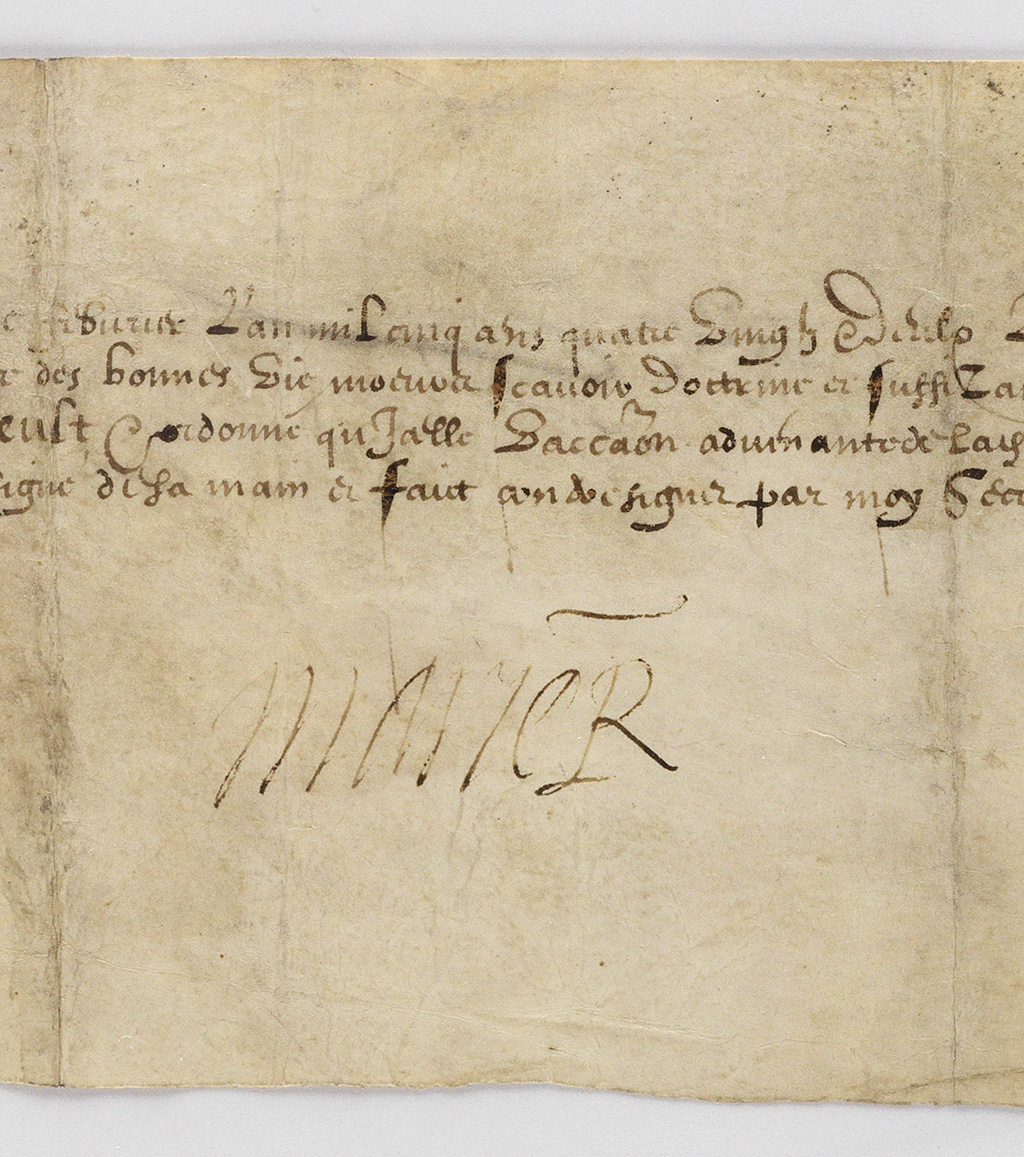 feburier L'an mil cinq cens quatre vingh & deulx
des bonnes vie moeurs scavoir doctrine et suffiza
eust & ordonne qu Icelle vaccaon advenante de la
signe de sa main et faict contresigner par moy Secr
MARIE R